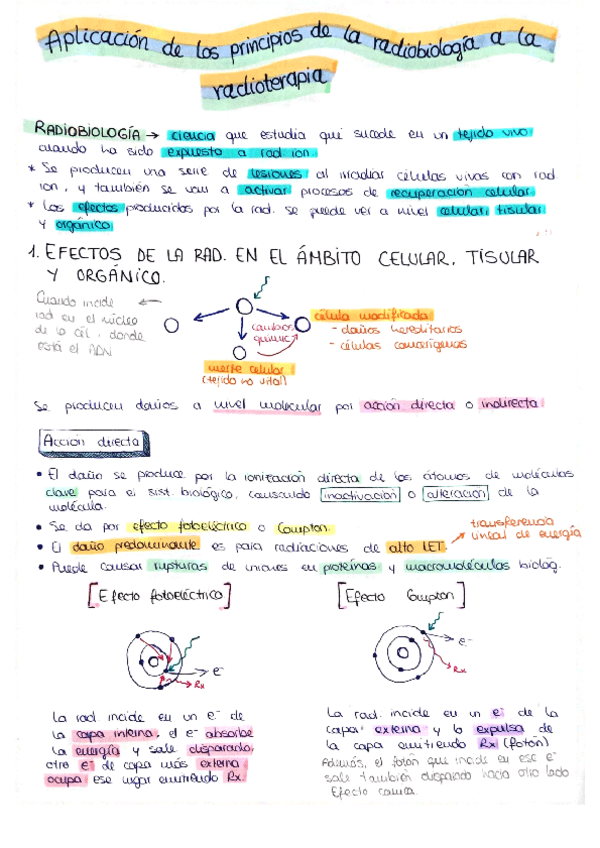 Aplicación de los principios de la radiobiología a la
radioterapia
RADIOBIOLOGÍA → ciencia que estudia qué sucede en un tejido vivo
cuando ha sido expuesto a rad ion.
* Se producen una serie de lesiones al irradiar células vivas con rad
ion, y también se van a activar procesos de recuperación celular.
* Los efectos producidos por la rad. se puede ver a nivel celular, tisular
y orgánico.
1. EFECTOS DE LA RAD. EN EL ÁMBITO CELULAR, TISULAR
Y ORGÁNICO.
Cuando incide
rad en el núcleo
de la cél, donde
está el ADN
cambios
químic
célula modificada
- daños hereditarios
- células cancerígenas
muerte celular
(tejido no vital)
Se producen daños a nivel molecular por acción directa o indirecta.
Acción directa
• El daño se produce por la ionización directa de los átomos de moléculas
clave para el sist. biológico, causando inactivación o alteración de la
molécula.
• Se da por efecto fotoeléctrico o Compton.
• El daño predominante es para radiaciones de alto LET.
transferencia
lineal de energía
• Puede causar rupturas de uniones en proteínas y macromoléculas biológ.
[Efecto fotoeléctrico]
e-
Rx
La rad. incide en un e- de
la capa interna, el e- absorbe
la energía y sale disparado,
otro e- de capa más externa
ocupa ese lugar emitiendo Rx.
[Efecto Compton]
e-
Rx
La rad. incide en un e- de la
capa externa y lo expulsa de
la capa emitiendo Rx (fotón)
Además, el fotón que incide en ese e-
sale también disparado hacia otro lado
Efecto